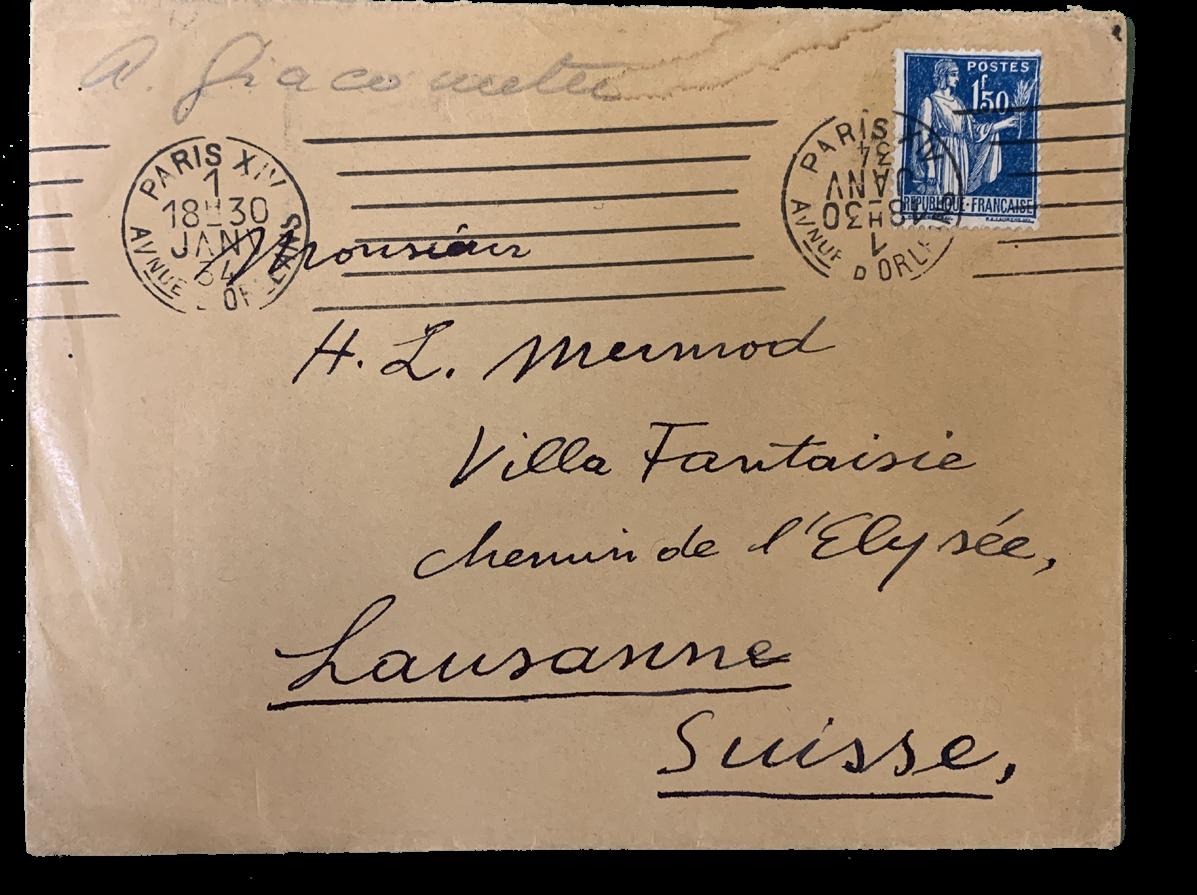 A. Giacometti
POSTES
1f50
REPUBLIQUE-FRANÇAISE
PARIS XIV
1
18H30
JANV
34
AVNUE D'ORLEANS
PARIS XIV
1
18H30
JANV
34
AVNUE D'ORLE
Monsieur
H. L. Mermod
Villa Fantaisie
chemin de l'Elysée,
Lausanne
Suisse,